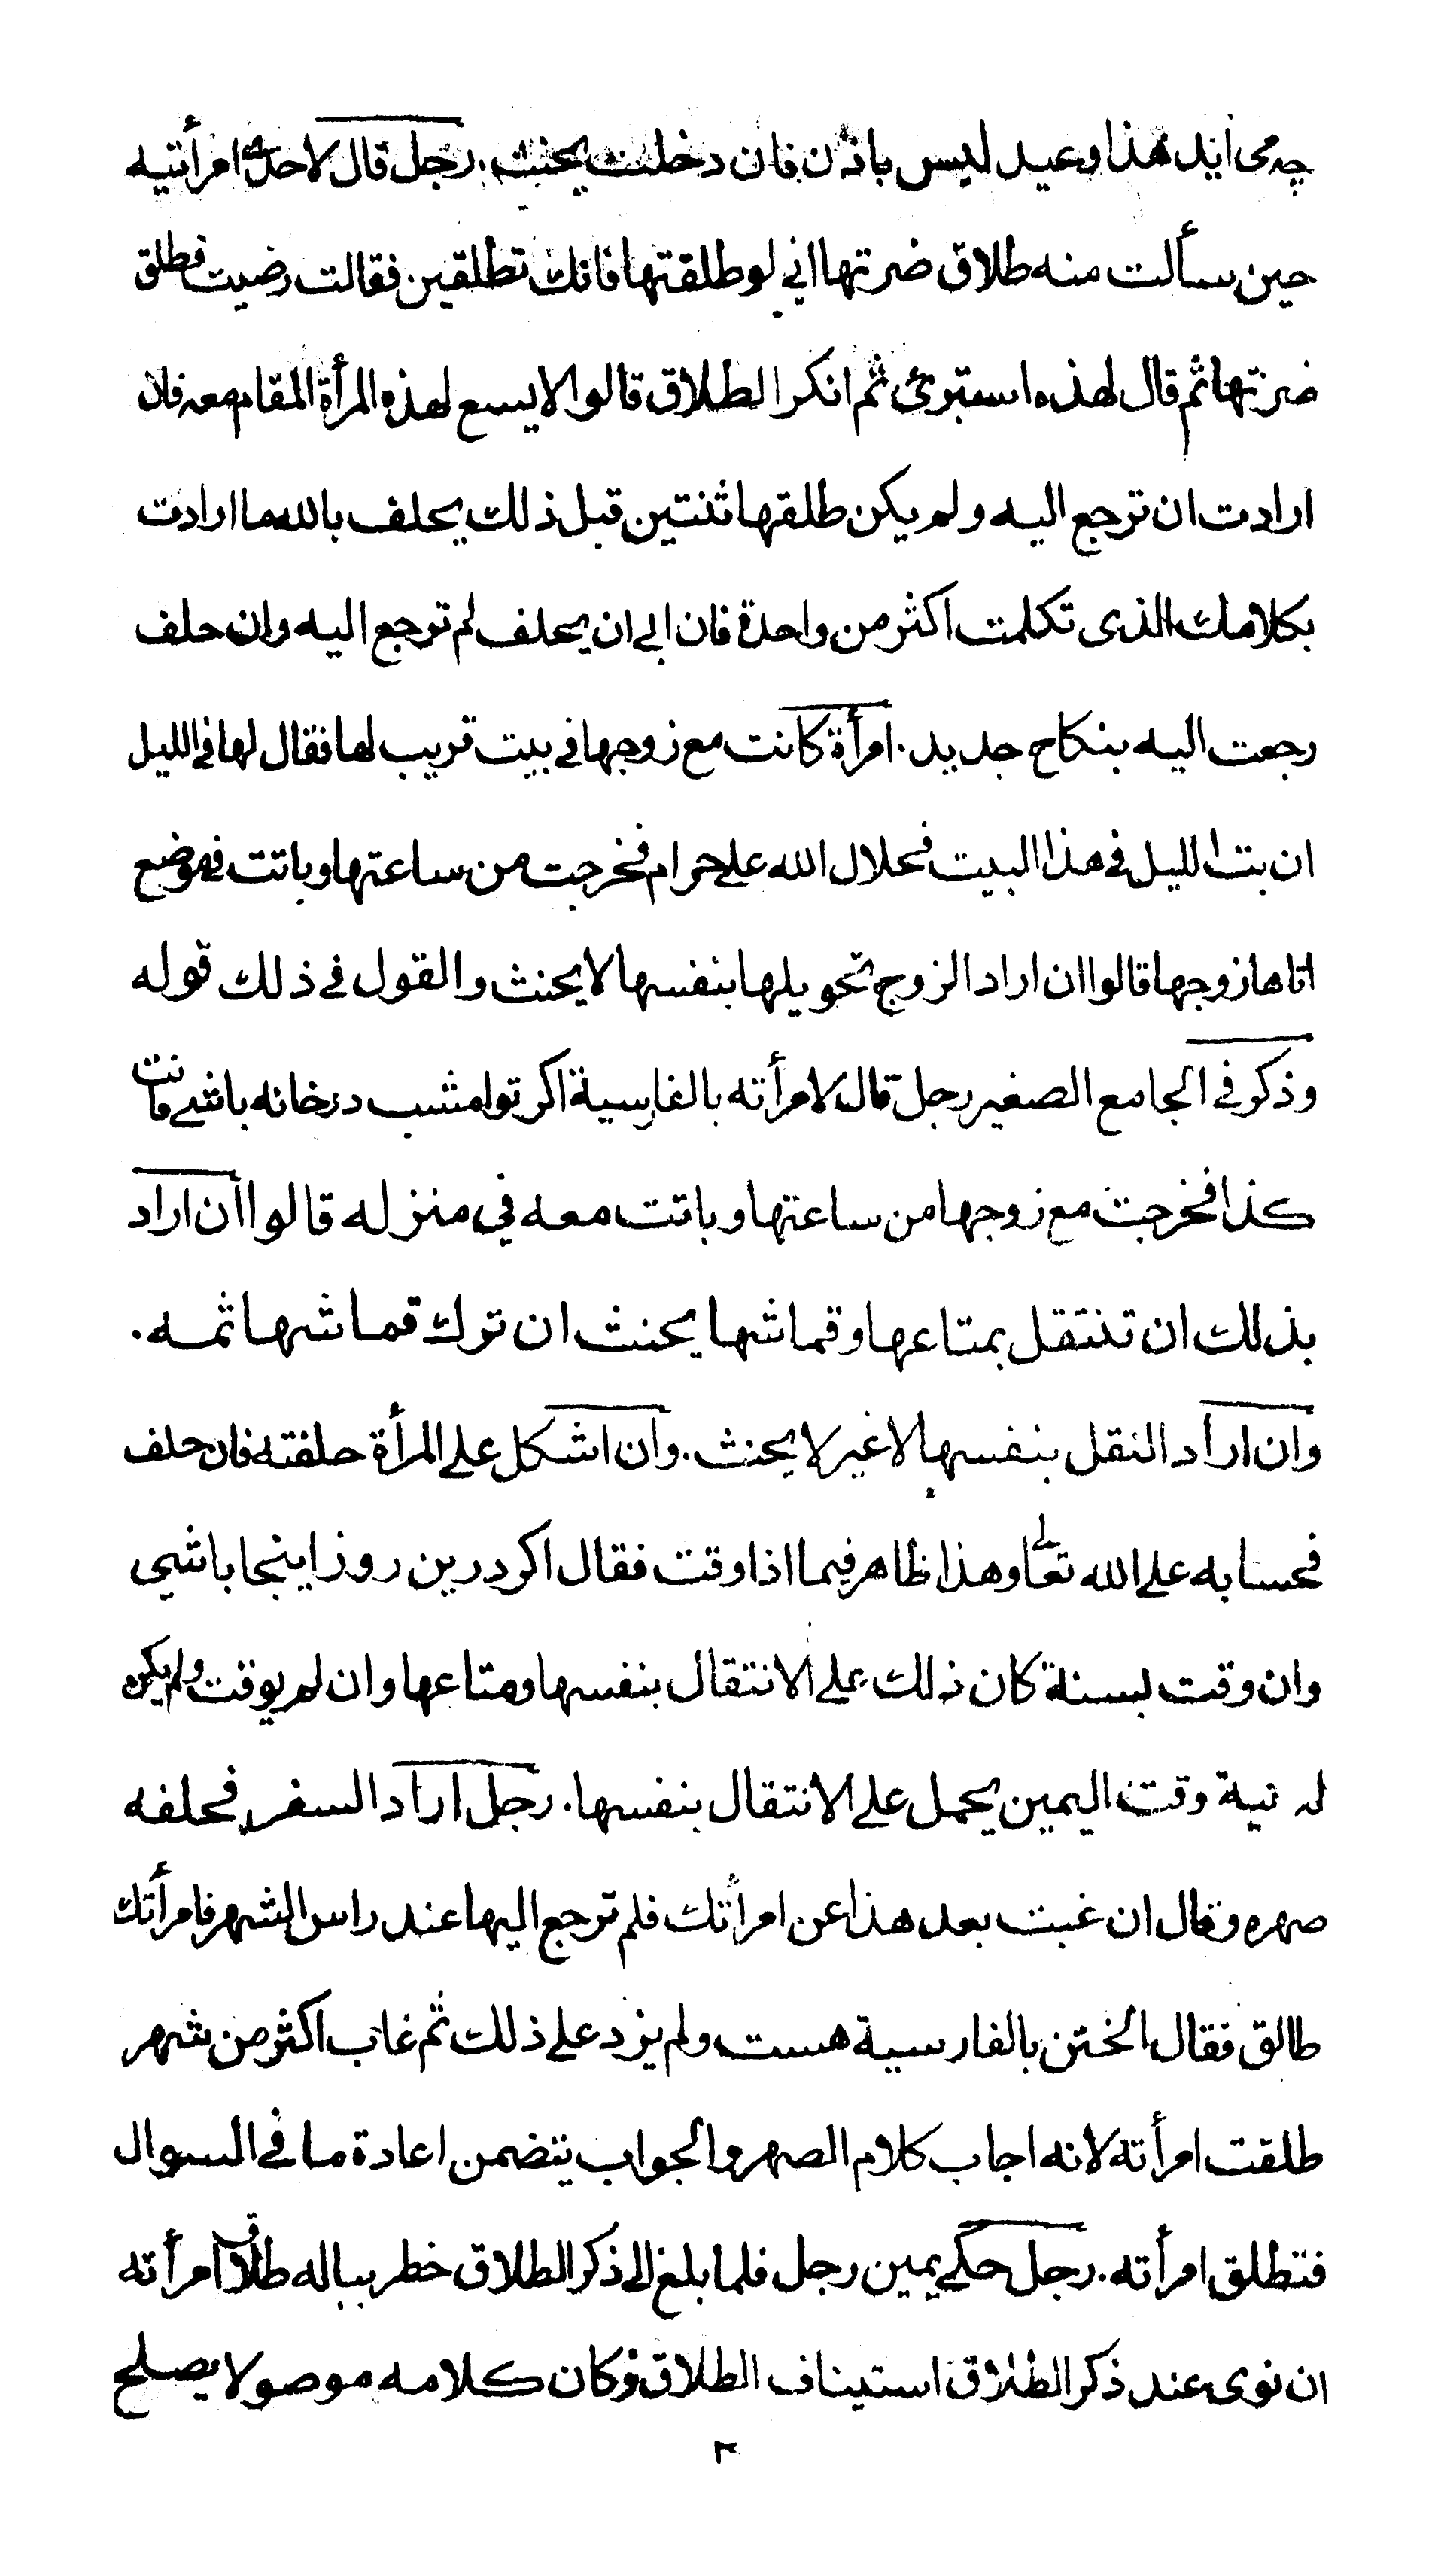 چه می آید هذا وعيد ليس باذن فان دخلت يحنث . رجل قال لاحدى امرأتيه
حين سألت منه طلاق ضرتها اني لو طلقتها فانك تطلقين فقالت رضيت فطلق
ضرتها ثم قال لهذه استبرئ ثم انكر الطلاق قالوا لا يسع لهذه المرأة المقام معه فان
ارادت ان ترجع اليه ولم يكن طلقها ثنتين قبل ذلك يحلف بالله ما ارادت
بكلامك الذى تكلمت اكثر من واحدة فان ابى ان يحلف لم ترجع اليه وان حلف
رجعت اليه بنكاح جديد . امرأة كانت مع زوجها في بيت قريب لها فقال لها في الليل
ان بت الليل في هذا البيت فحلال الله علي حرام فخرجت من ساعتها وباتت في موضع
اتاها زوجها قالوا ان اراد الزوج تحويلها بنفسها لا يحنث والقول في ذلك قوله
وذكر في الجامع الصغير رجل قال لامرأته بالفارسية اكر تو امشب درخانه باشی فانت
كذا فخرجت مع زوجها من ساعتها وباتت معه في منزله قالوا ان اراد
بذلك ان تنتقل بمتاعها وقماشها يحنث ان ترك قماشها ثمه .
وان اراد النقل بنفسها لا غير لا يحنث . وان اشكل على المرأة حلفته فان حلف
فحسابه على الله تعالى وهذا ظاهر فيما اذا وقت فقال اكر درين روز اينجا باشي
وان وقت بسنة كان ذلك على الانتقال بنفسها ومتاعها وان لم يوقت ولم يكن
له نية وقت اليمين يحمل على الانتقال بنفسها . رجل اراد السفر فحلفه
صهره وقال ان غبت بعد هذا عن امرأتك فلم ترجع اليها عند راس الشهر فامرأتك
طالق فقال الختن بالفارسية هست ولم يزد على ذلك ثم غاب اكثر من شهر
طلقت امرأته لانه اجاب كلام الصهر والجواب يتضمن اعادة ما في السوال
فتطلق امرأته . رجل حكى يمين رجل فلما بلغ الى ذكر الطلاق خطر بباله طلاق امرأته
ان نوى عند ذكر الطلاق استيناف الطلاق وكان كلامه موصولا يصلح